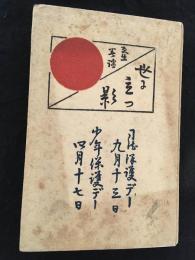 世に
立つ
影
司法保護デー
九月十三日
少年保護デー
四月十七日